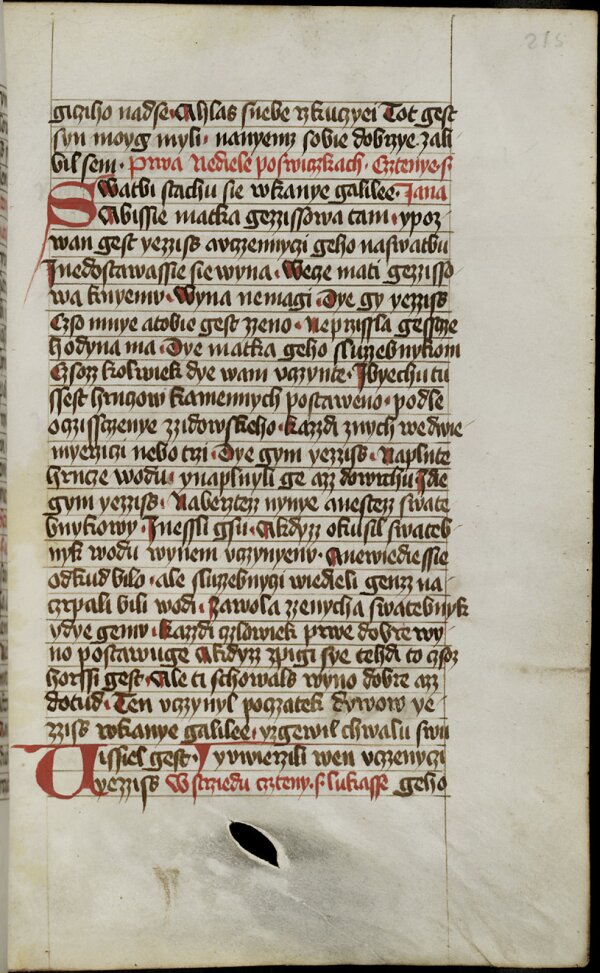 215
gicziho nadse · Ahlas snebe rzkuczyei Tot gest
syn moyg myli · nanyemz sobie dobrzye zali
bil sem · Prwa Nediele poswiczkach · Cztenye · s
Swatbi stachu sie wkanye galilee · Jana
Abissie matka gezzissowa tam · ypoz
wan gest yezzis avczennyczi geho naswatbu
Jnedostawassie sie wyna · Wecze mati gezzisso
wa knyemv · Wyna nemagi · Dye gy yezzis
Czso mnye atobie gest zzeno · Neprzissla gesscze
hodyna ma · Dye matka geho sluzzebnykom
Czsozz kolwiek dye wam vczynte · Jbyechu tu
ssest hrncow kamennych postaweno · podle
oczissczenye zzidowskeho · kazzdi znych wedwie
myerziczi nebo trzi · Dye gym yezzis · Naplnte
hrncze wodu · ynaplnyli ge azz dowrchu Jdie
gym yezzis · Naberztezz nynye anestezz swate
bnykowy · Jnessli gsu · Akdyzz okusil swateb
nyk wodu wynem vczynyenv · Anewiediessie
odkud bilo · ale sluzzebnyczi wiedieli genzz na
czrpali bili wodi · Zawola zzenycha swatebnyk
ydye gemv · kazzdi czlowiek prwe dobre wy
no postawuge Akdyzz zpigi sye tehdi to czsozz
horssi gest · Ale ti schowals wyno dobre azz
dotud · Ten vczynyl poczatek dywow ye
zzis wkanye galilee · yzgewil chwalu swu
Uissiel gest · Yvwierzili wen vczenyczi
yezzis Wstrziedu czteny · s · lukasse geho